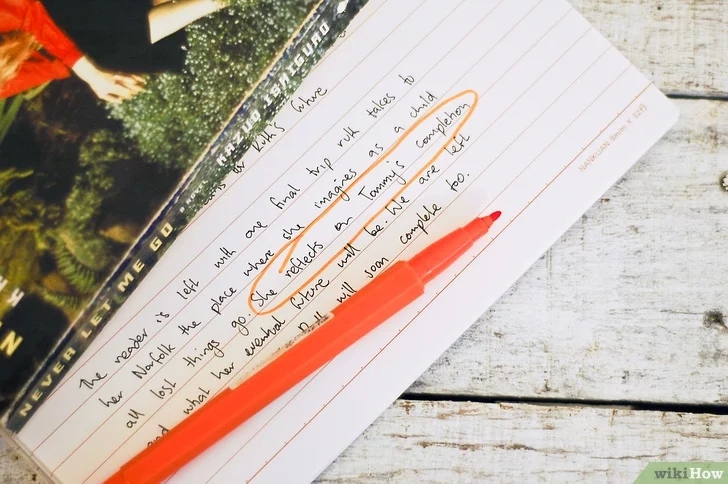 NEVER LET ME GO
KAZUO ISHIGURO
Ruth's future
The reader is left with one final trip ruth takes to
her Norfolk the place where she imagines as a child
all lost things go. She reflects on Tommy's completion
and what her eventual future will be. We are left
Ruth will soon complete too.
NANKUAN 8mm X 32行
wikiHow